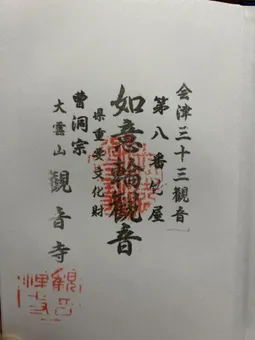 会津三十三観音
第八番札屋
如意輪観音
県重要文化財
曹洞宗
大雲山 観音寺